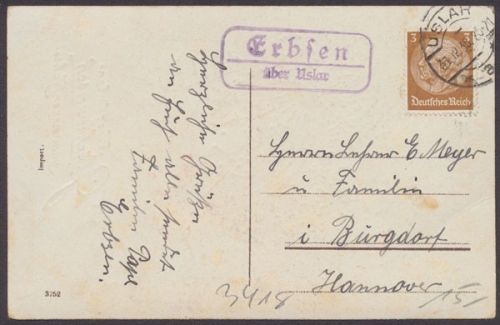 Erbsen
über Uslar
USLAR
3
3
Deutsches Reich
Import.
Herzliche Grüßen
an Euch allen sendet
Familie
Erbsen.
Herrn Lehrer E. Meyer
u Familie
i Burgdorf
Hannover
3418
151
3752